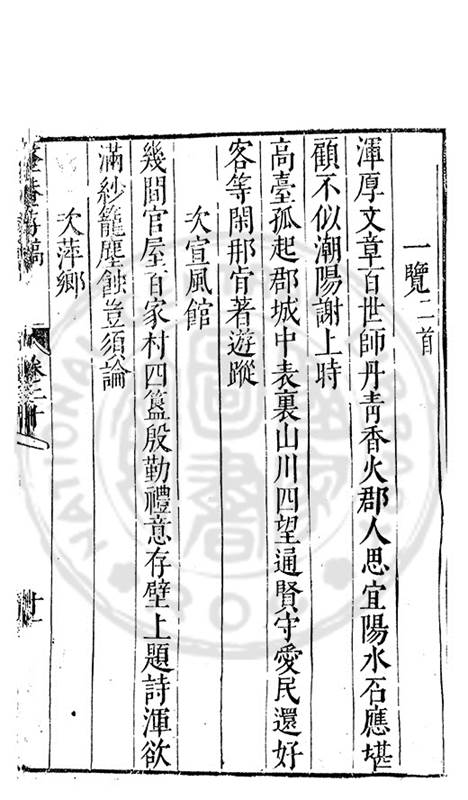 一覽二首
渾厚文章百世師丹靑香火郡人思宜陽水石應堪
顧不似潮陽謝上時
高臺孤起郡城中表裏山川四望通賢守愛民還好
客等閑那肯著遊蹤
次宣風館
幾間官屋百家村四簋殷勤禮意存壁上題詩渾欲
滿紗籠塵蝕豈須論
次萍鄉
卷二十
十一